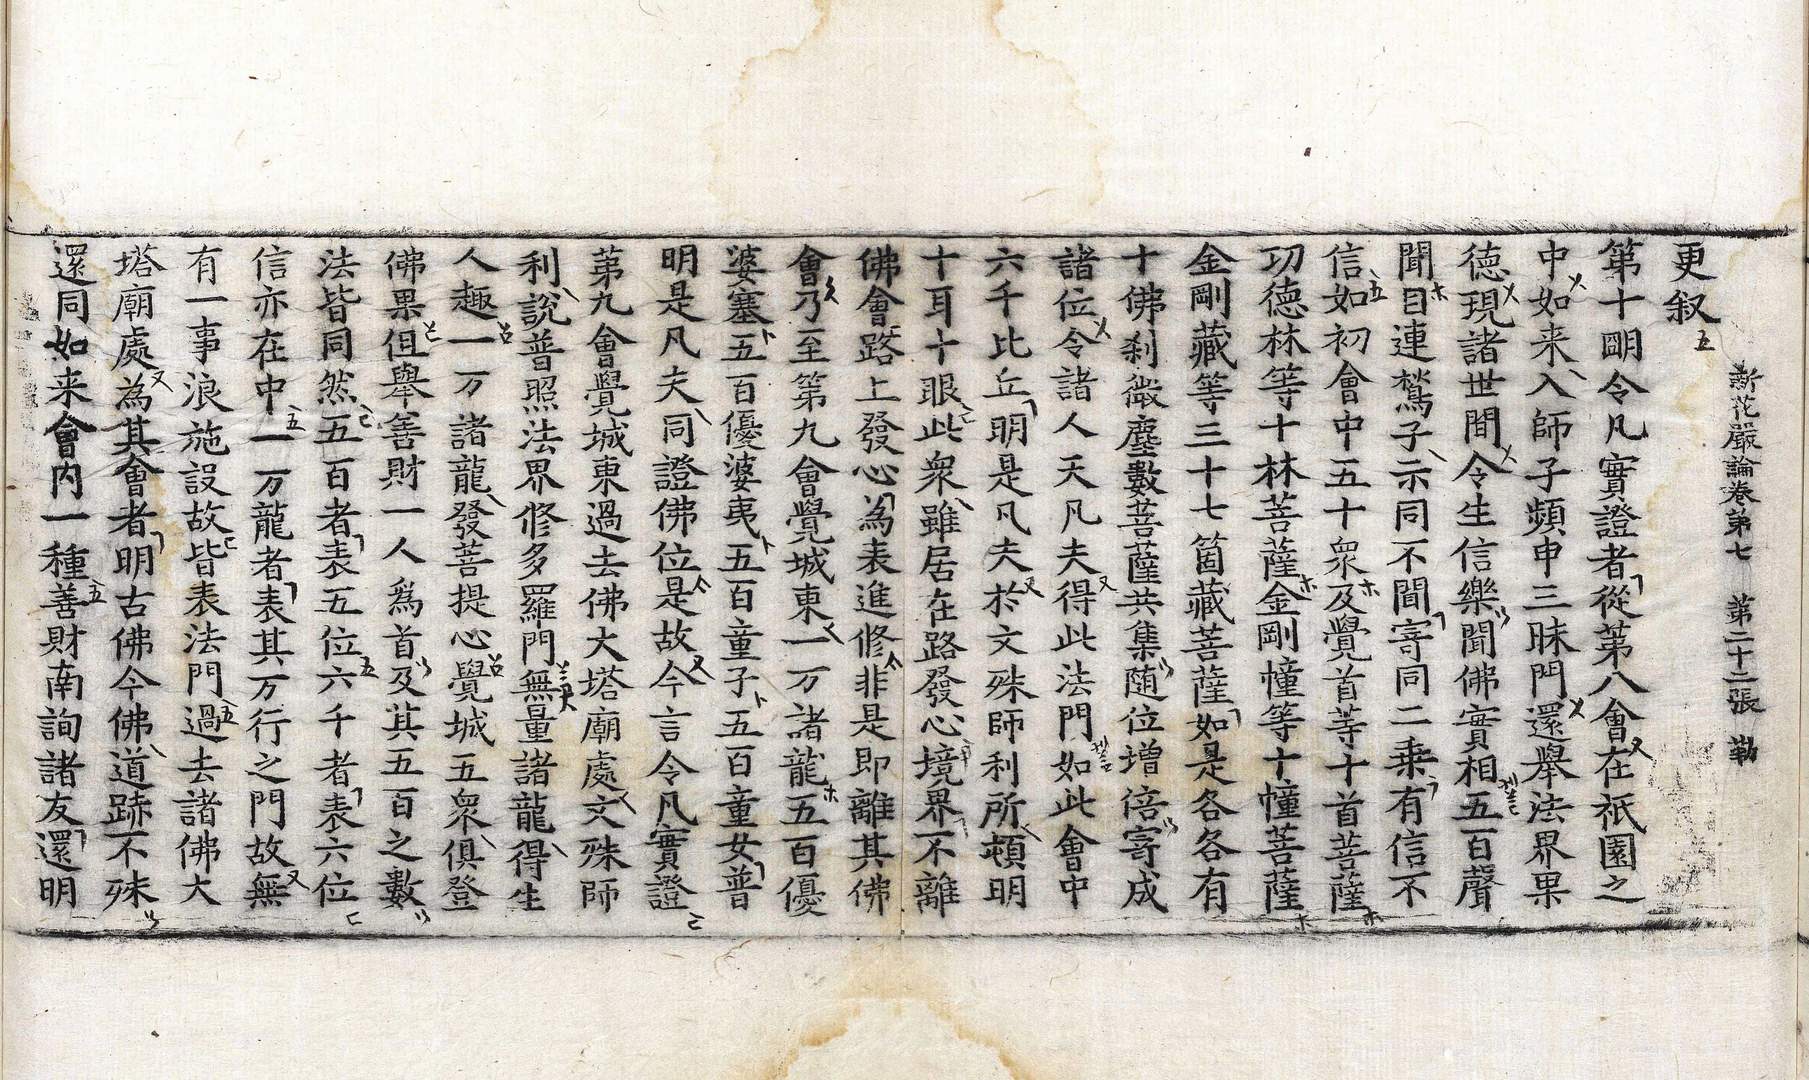 新花嚴論卷第七　第二十二張　勒
更叙
第十明令凡實證者從第八會在祇園之
中如来入師子頻申三昧門還舉法界果
德現諸世間令生信樂聞佛實相五百聲
聞目連鶖子示同不聞寄同二乗有信不
信如初會中五十衆及覺首等十首菩薩
功德林等十林菩薩金剛幢等十幢菩薩
金剛藏等三十七箇藏菩薩如是各各有
十佛刹微塵數菩薩共集随位增倍寄成
諸位令諸人天凡夫得此法門如此會中
六千比丘明是凡夫於文殊師利所頓明
十耳十眼此衆雖居在路發心境界不離
佛會路上發心為表進修非是即離其佛
會乃至第九會覺城東一万諸龍五百優
婆塞五百優婆夷五百童子五百童女普
明是凡夫同證佛位是故今言令凡實證
第九會覺城東過去佛大塔廟處文殊師
利說普照法界修多羅門無量諸龍得生
人趣一万諸龍發菩提心覺城五衆俱登
佛果但舉善財一人爲首及其五百之數
法皆同然五百者表五位六千者表六位
信亦在中一万龍者表其万行之門故無
有一事浪施設故皆表法門過去諸佛大
塔廟處為其會者明古佛今佛道跡不殊
還同如来會内一種善財南詢諸友還明